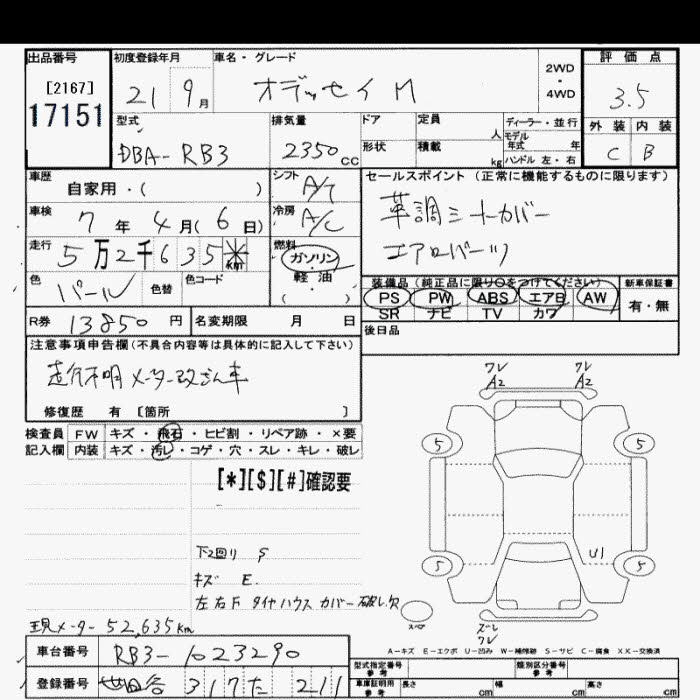 出品番号
[2167]
17151
初度登録年月
21 9月
車名・グレード
オデッセイ M
2WD
・
4WD
評価点
3.5
外装 内装
C B
型式
DBA-RB3
排気量
2350cc
ドア
形状
定員
人
積載
kg
ディーラー・並行
モデル
年式 年
ハンドル 左・右
車歴
自家用・( )
シフト
A/T
車検
7年4月(6日)
冷房
A/C
走行
5万2千635*
km
燃料
ガソリン
・
軽油
・
( )
色
パール
色替
色コード
セールスポイント(正常に機能するものに限ります)
革調シートカバー
エアロパーツ
装備品(純正品に限り○をつけてください)
PS PW ABS エアB AW
SR ナビ TV カワ
新車保証書
有・無
R券 13850円
名変期限 月 日
後日品
注意事項申告欄(不具合内容等は具体的に記入して下さい)
走行不明 メーター改ざん車
修復歴 有 [箇所 ]
検査員
記入欄
FW キズ・飛石・ヒビ割・リペア跡・×要
内装 キズ・汚レ・コゲ・穴・スレ・キレ・破レ
[*][$][#]確認要
下回り S
キズ E.
左右F タイヤハウスカバー破レ欠
現メーター 52,635km
ワレ
A2
ワレ
A2
5
5
5
5
U1
スペア
ズレ
ワレ
A-キズ E-エクボ U-凹み W-補修跡 S-サビ C-腐食 XX-交換済
車台番号 RB3-1023290
登録番号 世田谷 317 た 211
型式指定番号
参考
類別区分番号
参考
車庫証明用
参考
長さ cm
幅 cm
高さ cm